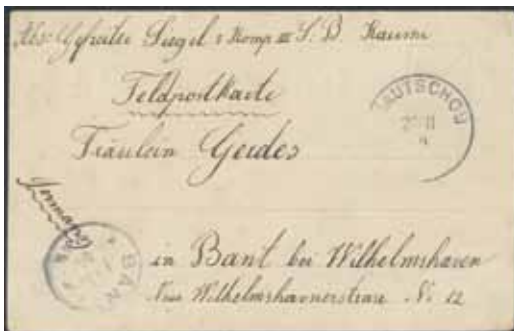 Abs. Gefreiter Siegel 1 Komp III S. B. Kaumi
Feldpostkarte
TSINTAU
Fräulein Gerdes
Germany
BANT
in Bant bei Wilhelmshaven
Neue Wilhelmshavenerstrasse No 12